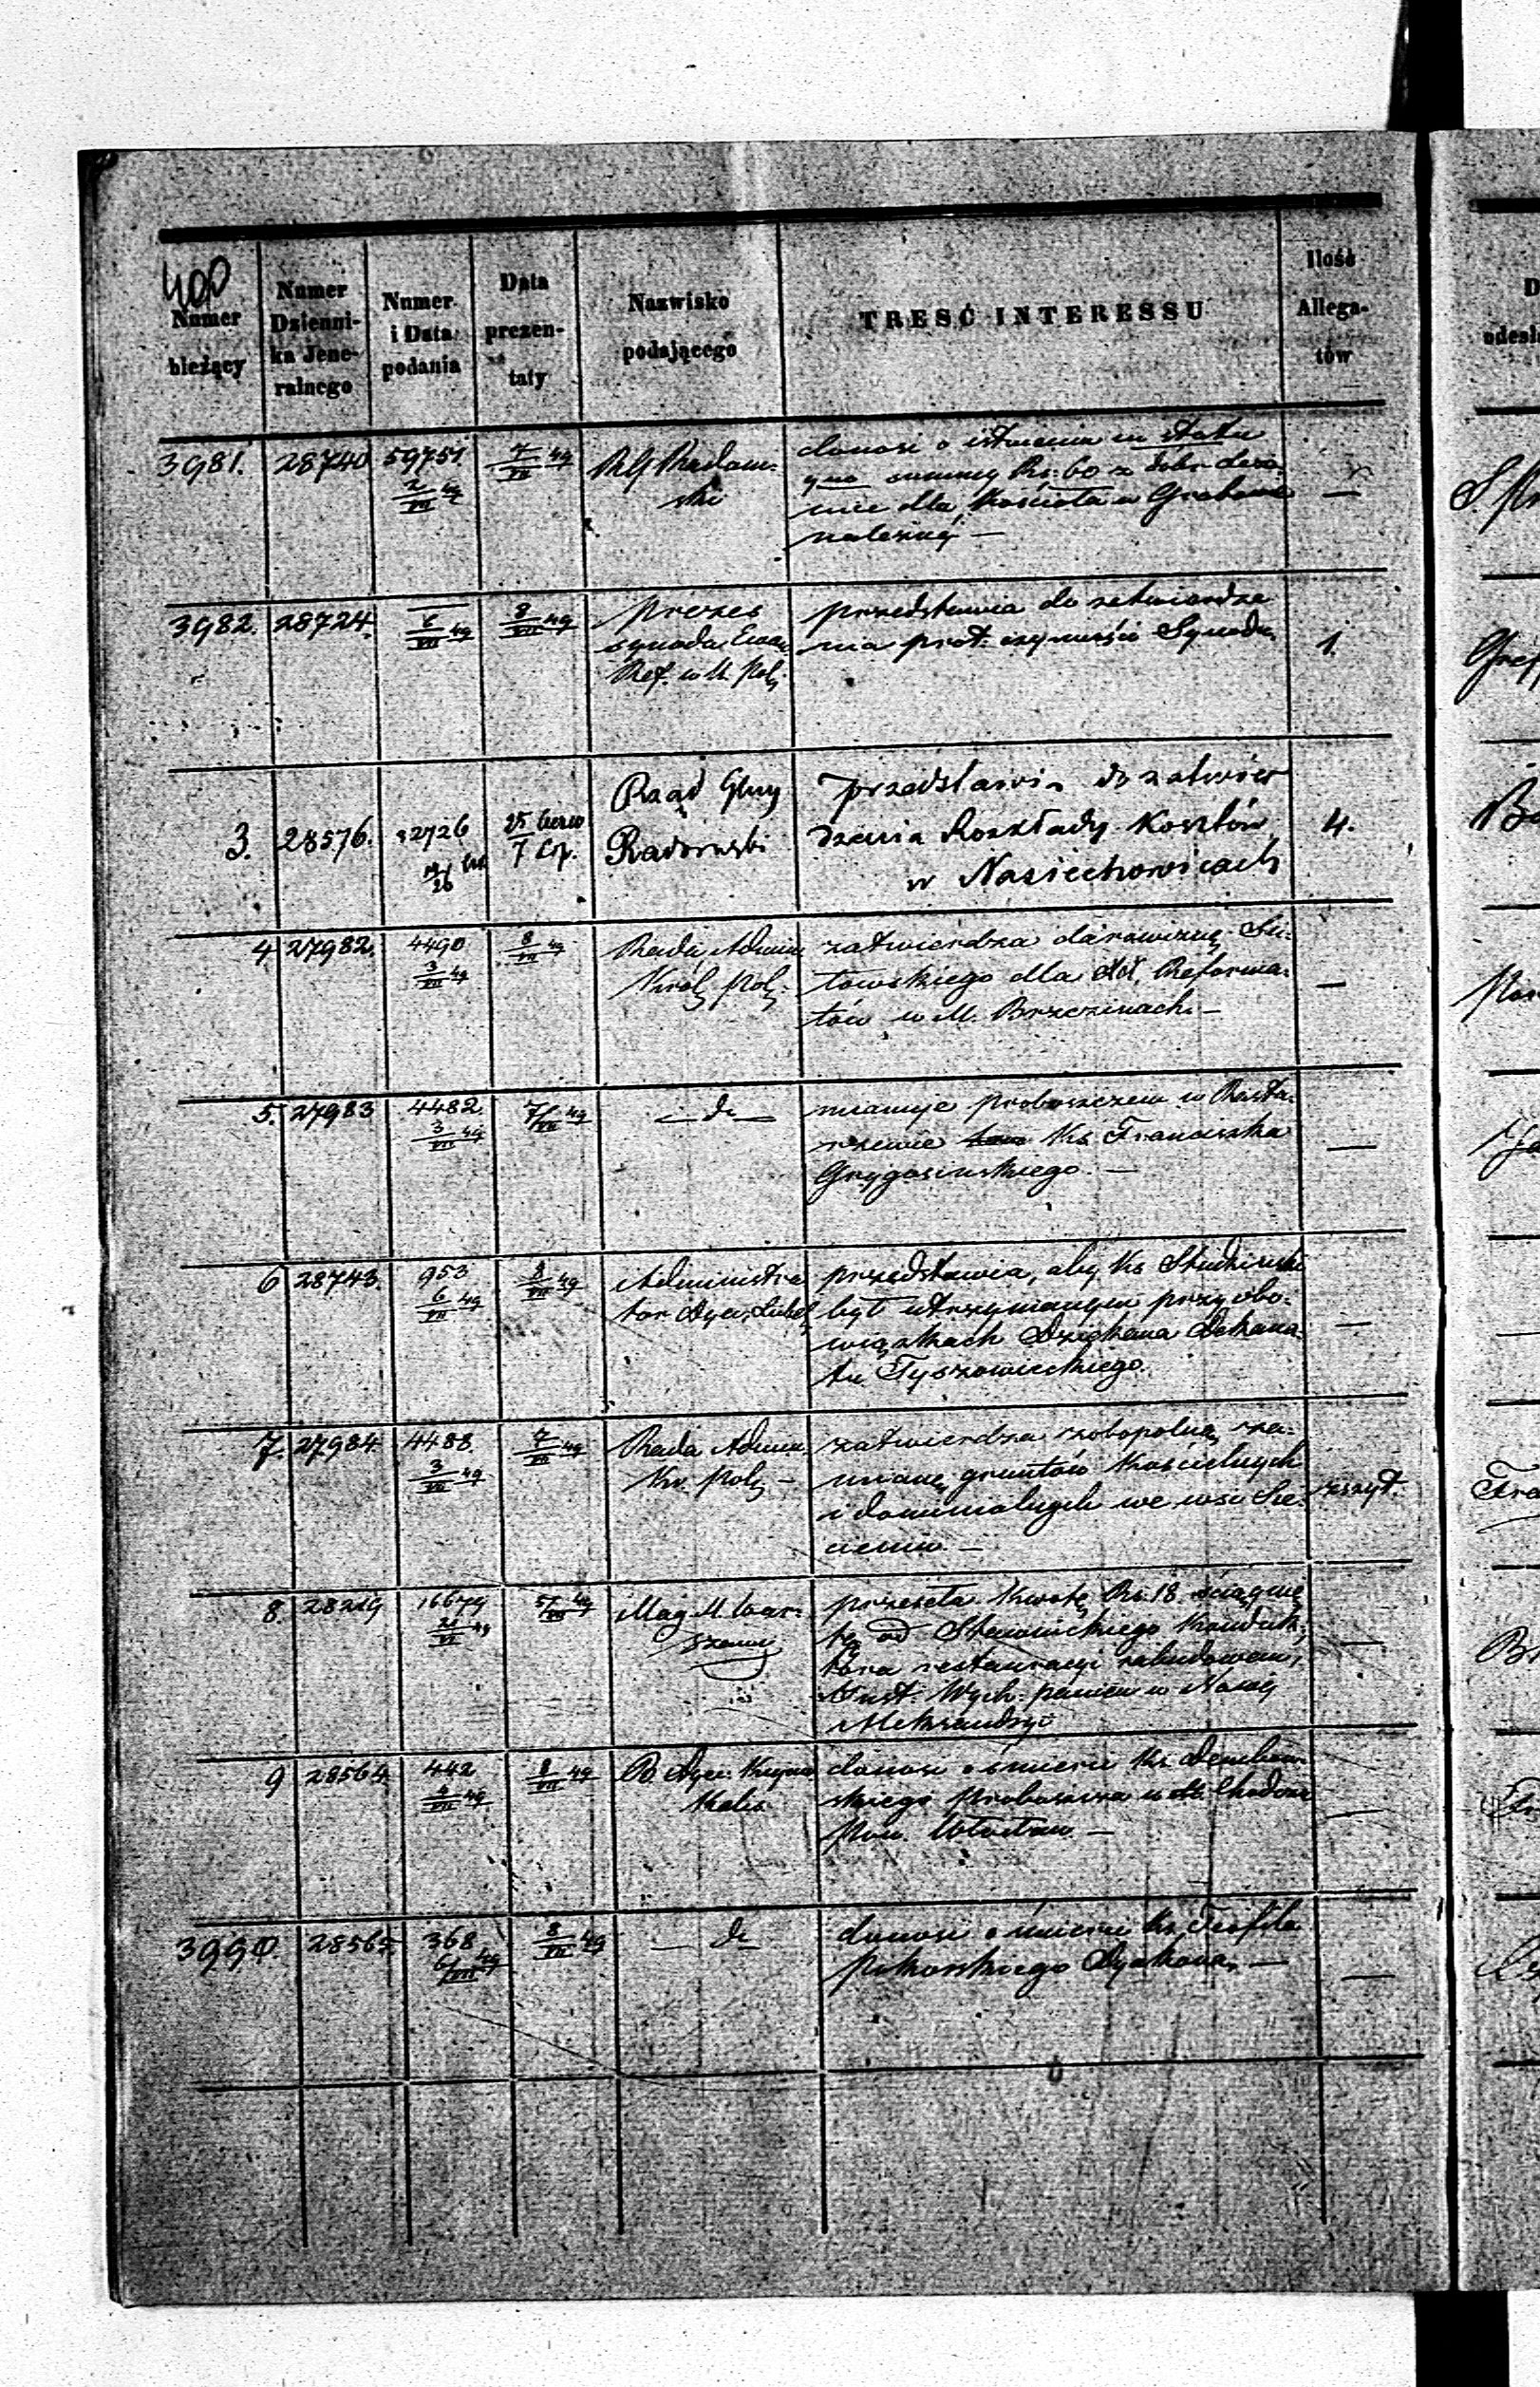 400
Numer
bieżący
Numer
Dzienni-
ka Jene-
ralnego
Numer
i Data
podania
Data
prezen-
taty
Nazwisko
podającego
TRESĆ INTERESSU
Ilość
Allega-
tów
3981. 28740 59751. 2/VII 49 7/VII 49
Radom-
ski
donosi o istnieniu in statu
quo summy Rs: 60 z dóbr
dla Kościoła w
należnéj —
—
3982. 28724. 6/VII 49 8/VII 49
Prezes
Synodu Ewan.
Ref. w K. Pol.
przedstawia do zatwierdze
nia prot. czynności Synodu
1.
3. 28576. 32726 25 Czerw / 7 Lip.
Rząd Gbny
Radomski
przedstawia do zatwier
dzenia Rozkłady Kosztów
w Nasiechowicach
4.
4 27982. 4490 3/VII 49 8/VII 49
Rada Admin
Król. Pol.
zatwierdza darowiznę Su-
towskiego dla XX. Reforma-
tów w M. Brzezinach. —
—
5. 27983 4482 3/VII 49 7/VII 49
— d° —
mianuje proboszczem w Rasta-
rzewie Ks. Franciszka
Grygosinskiego. —
—
6 28743. 953 6/VII 49 8/VII 49
Administra
tor Dyec. Lubel.
przedstawia, aby Ks. Studziński
był utrzymanym przy obo-
wiązkach Dziekana Dekana-
tu Tyszowieckiego.
—
7. 27984 4488 3/VII 49 7/VII 49
Rada Admin.
Kr. Pol. —
zatwierdza zobopolną za-
mianę gruntów Kościelnych
i dominialnych we wsi Sie-
cieniu. —
zszyt.
8. 28219 16679 21/VI 49 5/VII 49
Mag. M. War-
szawy
przeseła Kwotę Rs. 18. ściągnię
tą od Sławinskiego Konduk-
tora restauracyi zabudowań
Inst. Wych: panien w Nowej
Aleksandryi
—
9 28564. 442 4/VII 49 8/VII 49
Dyec. Kujaw
Kalis
donosi o śmierci Ks. Dembow-
skiego Proboszcza w
pow. Włocław. —
—
3990. 28565 368 6/VII 49 8/VII 49
— d°
donosi o śmierci Ks. Teofila
Pikorskiego Dyakona. —
—